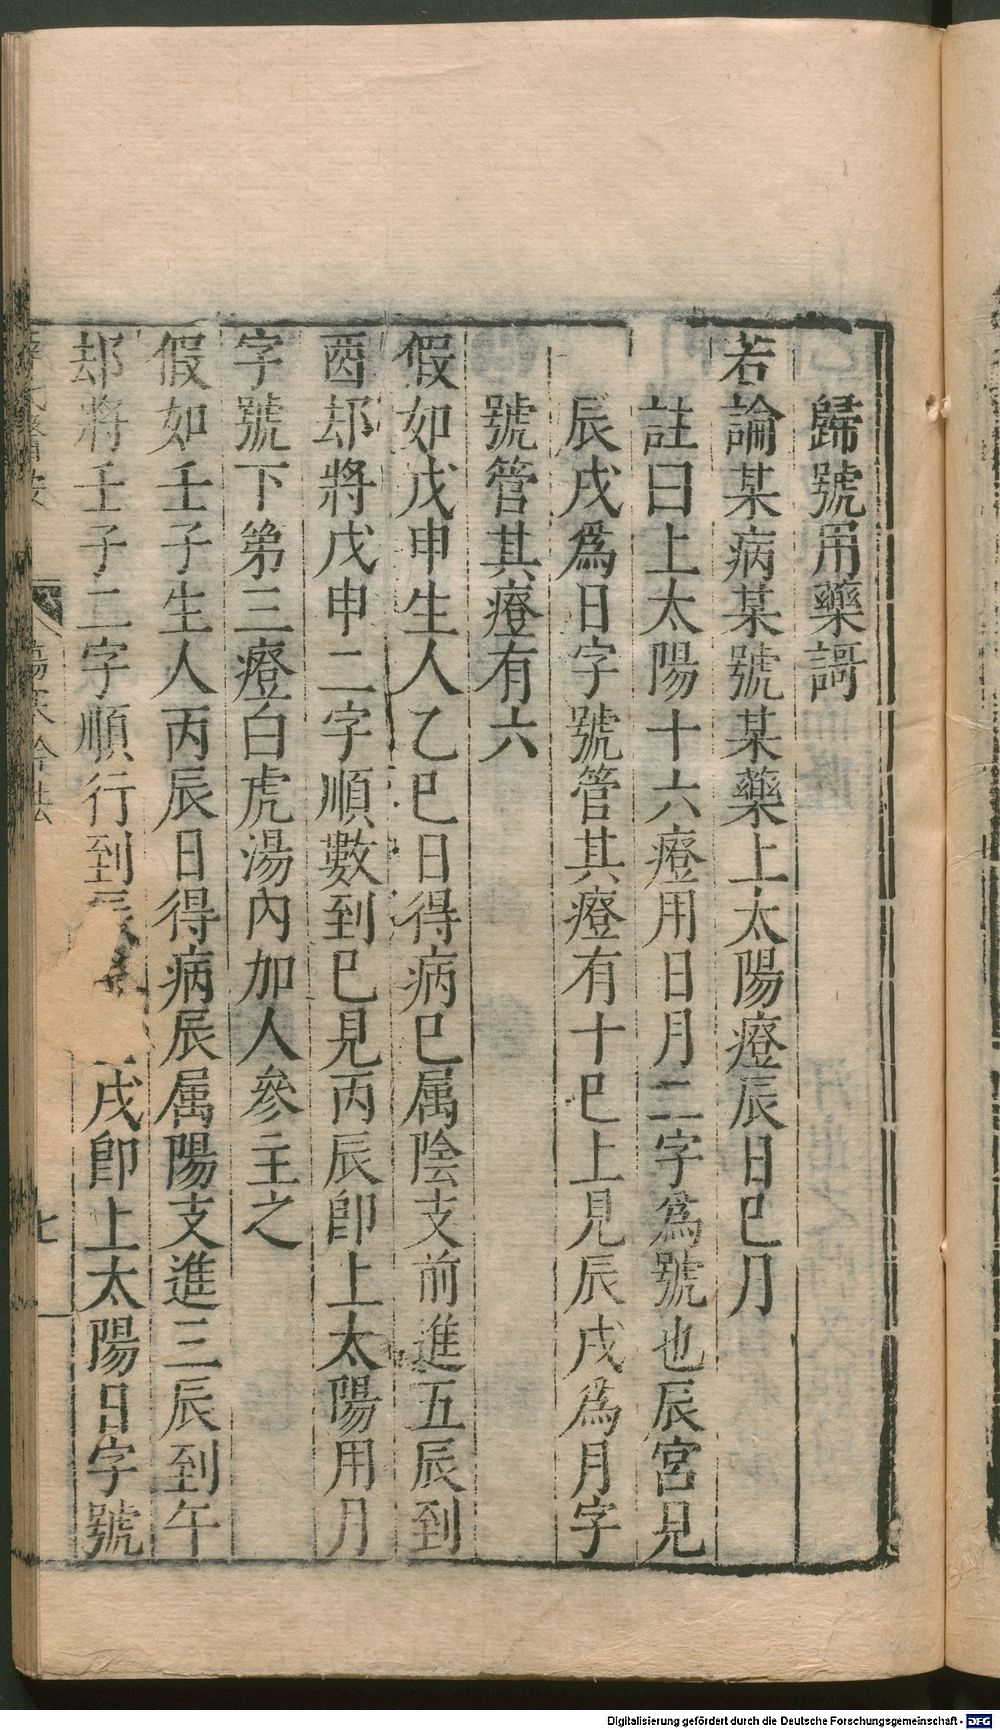 歸號用藥謌
若論某病某號某藥上太陽癧辰日巳月
註曰上太陽十六癧用日月二字爲號也辰宮見
辰戌爲日字號管其癧有十巳上見辰戌爲月字
號管其癧有六
假如戊申生人乙巳日得病巳属陰支前進五辰到
酉却將戊申二字順數到巳見丙辰卽上太陽用月
字號下第三癧白虎湯內加人參主之
假如壬子生人丙辰日得病辰属陽支進三辰到午
却將壬子二字順行到 戌卽上太陽日字號
傷寒鈐法
七
Digitalisierung gefördert durch die Deutsche Forschungsgemeinschaft - DFG